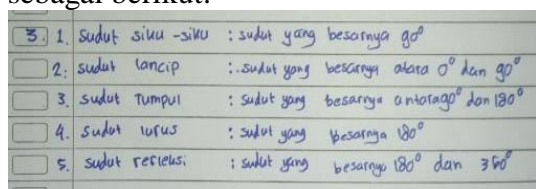 3. 1. Sudut siku-siku : sudut yang besarnya 90°
2. sudut lancip : sudut yang besarnya atara 0° dan 90°
3. sudut Tumpul : sudut yang besarnya antara 90° dan 180°
4. sudut lurus : sudut yang besarnya 180°
5. sudut refleksi : sudut yang besarnya 180° dan 360°